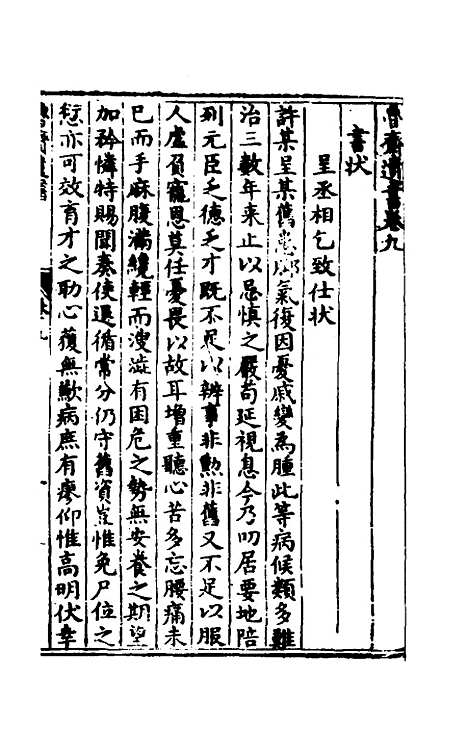 魯齋遺書卷九
書狀
呈丞相乞致仕狀
許某呈某舊患脚氣復因憂戚變為腫此等病候類多難
治三數年來止以忌慎之嚴苟延視息今乃叨居要地陪
列元臣乏德乏才既不足以辨事非勲非舊又不足以服
人虛負寵恩莫任憂畏以故耳增重聽心苦多忘腰痛未
已而手麻腹滿纔輕而溲澁有困危之勢無安養之期望
加矜憐特賜聞奏使還循常分仍守舊資豈惟免尸位之
愆亦可效育才之助心獲無歉病庶有瘳仰惟高明伏幸